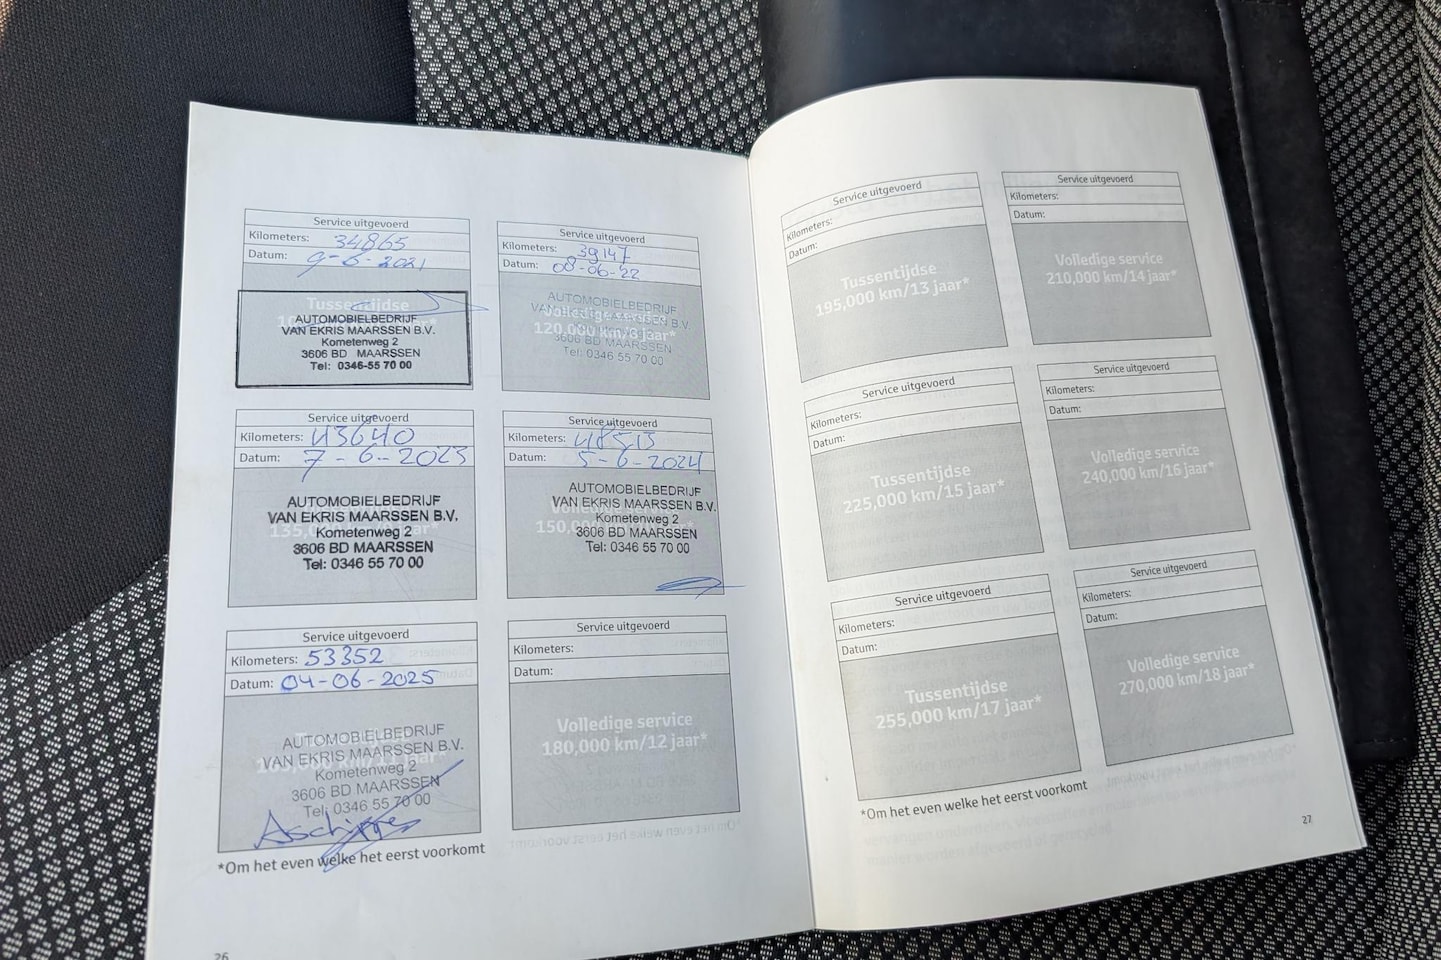 Service uitgevoerd
Kilometers: 34865
Datum: 9-6-2021
Tussentijdse
AUTOMOBIELBEDRIJF
VAN EKRIS MAARSSEN B.V.
Kometenweg 2
3606 BD MAARSSEN
Tel: 0346-55 70 00
Service uitgevoerd
Kilometers: 39147
Datum: 08-06-22
AUTOMOBIELBEDRIJF
Volledige service
VAN EKRIS MAARSSEN B.V.
120,000 km/8 jaar*
3606 BD MAARSSEN
Tel: 0346 55 70 00
Service uitgevoerd
Kilometers: 43640
Datum: 7-6-2023
AUTOMOBIELBEDRIJF
VAN EKRIS MAARSSEN B.V.
135,000
Kometenweg 2
3606 BD MAARSSEN
Tel: 0346 55 70 00
Service uitgevoerd
Kilometers: 48513
Datum: 5-6-2024
AUTOMOBIELBEDRIJF
VAN EKRIS MAARSSEN B.V.
150,000
Kometenweg 2
3606 BD MAARSSEN
Tel: 0346 55 70 00
Service uitgevoerd
Kilometers: 53352
Datum: 04-06-2025
AUTOMOBIELBEDRIJF
VAN EKRIS MAARSSEN B.V.
Kometenweg 2
3606 BD MAARSSEN
Tel: 0346 55 70 00
Service uitgevoerd
Kilometers:
Datum:
Volledige service
180,000 km/12 jaar*
*Om het even welke het eerst voorkomt
26
Service uitgevoerd
Kilometers:
Datum:
Tussentijdse
195,000 km/13 jaar*
Service uitgevoerd
Kilometers:
Datum:
Volledige service
210,000 km/14 jaar*
Service uitgevoerd
Kilometers:
Datum:
Tussentijdse
225,000 km/15 jaar*
Service uitgevoerd
Kilometers:
Datum:
Volledige service
240,000 km/16 jaar*
Service uitgevoerd
Kilometers:
Datum:
Tussentijdse
255,000 km/17 jaar*
Service uitgevoerd
Kilometers:
Datum:
Volledige service
270,000 km/18 jaar*
*Om het even welke het eerst voorkomt
27